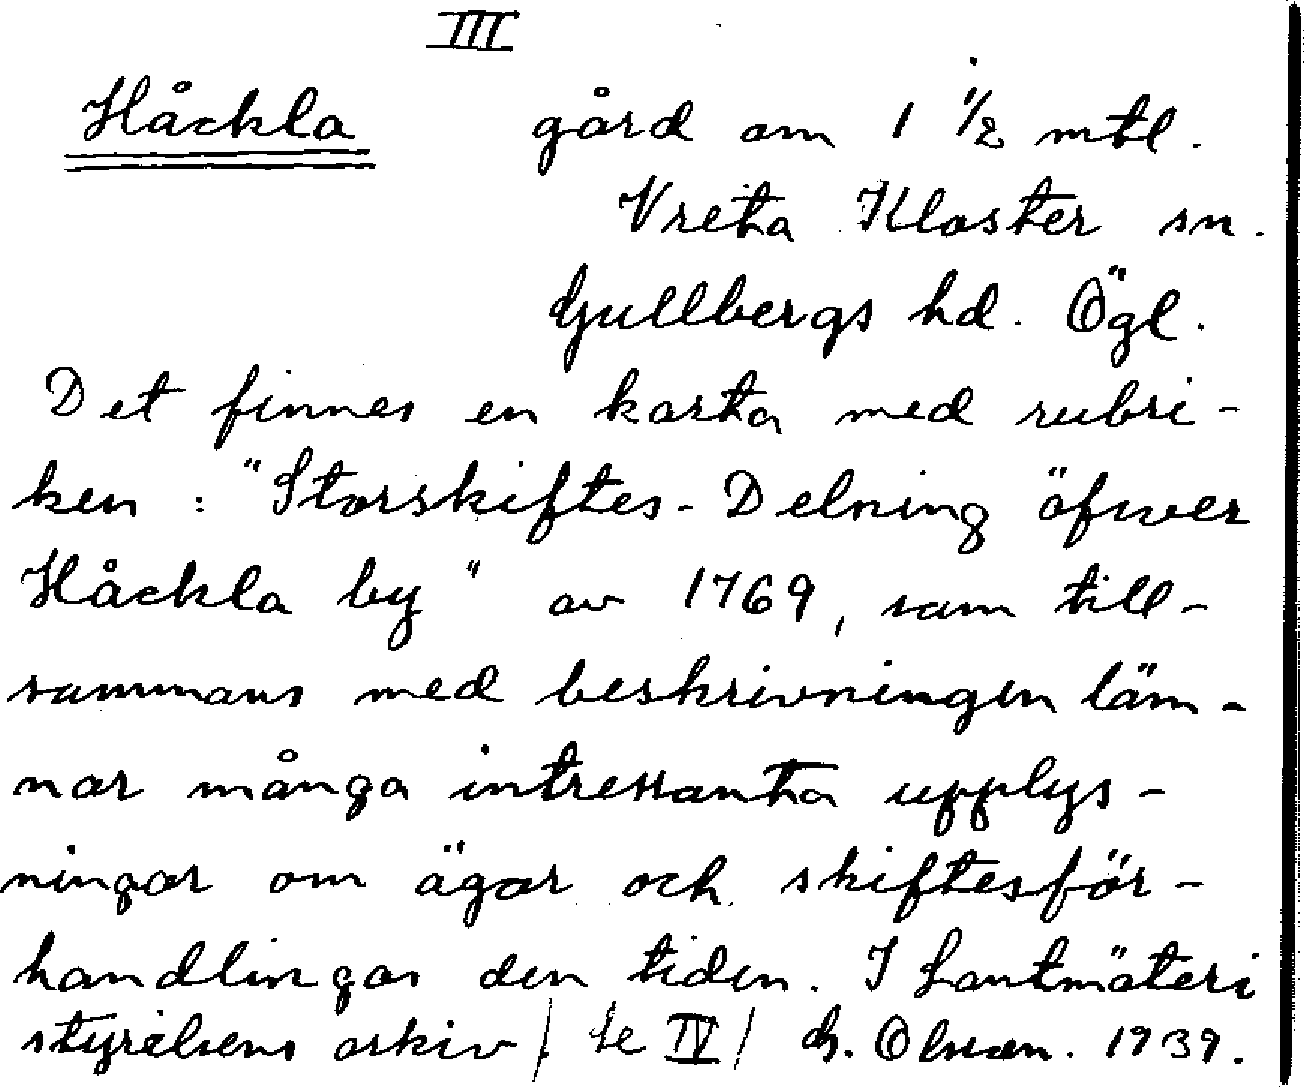 III
Håckla gård om 1 1/2 mtl.
Vreta Kloster sn.
Gullbergs hd. Ögl.
Det finnes en karta med rubri-
ken: "Storskiftes-Delning öfwer
Håckla by" av 1769, som till-
sammans med beskrivningen läm-
nar många intressanta upplys-
ningar om ägor och skiftesför-
handlingar den tiden. I Lantmäteri
styrelsens arkiv / Se IV / Olsson. 1939.